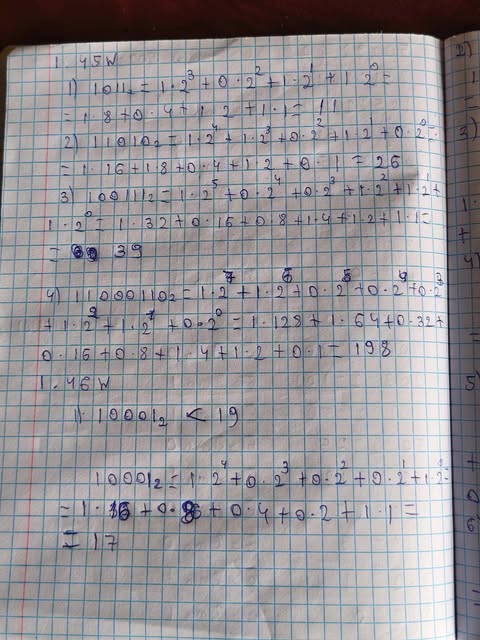 1.45W
1) 1011₂ = 1·2³ + 0·2² + 1·2¹ + 1·2⁰ =
= 1·8 + 0·4 + 1·2 + 1·1 = 11
2) 11010₂ = 1·2⁴ + 1·2³ + 0·2² + 1·2¹ + 0·2⁰ =
= 1·16 + 1·8 + 0·4 + 1·2 + 0·1 = 26
3) 100111₂ = 1·2⁵ + 0·2⁴ + 0·2³ + 1·2² + 1·2¹ +
1·2⁰ = 1·32 + 0·16 + 0·8 + 1·4 + 1·2 + 1·1 =
= 39
4) 11000110₂ = 1·2⁷ + 1·2⁶ + 0·2⁵ + 0·2⁴ + 0·2³
+ 1·2² + 1·2¹ + 0·2⁰ = 1·128 + 1·64 + 0·32 +
0·16 + 0·8 + 1·4 + 1·2 + 0·1 = 198
1.46W
1) 10001₂ < 19
10001₂ = 1·2⁴ + 0·2³ + 0·2² + 0·2¹ + 1·2⁰ =
= 1·16 + 0·8 + 0·4 + 0·2 + 1·1 =
= 17
2)
3)
4)
5)
6)